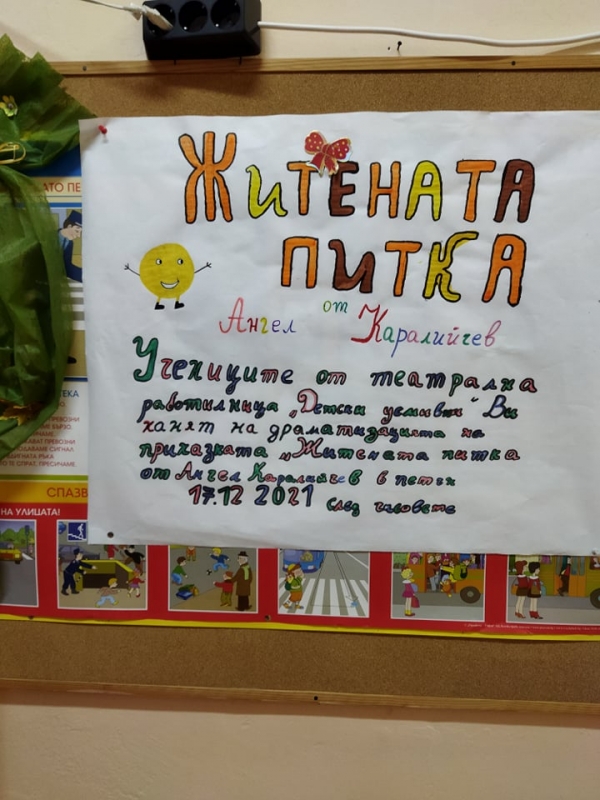 ЖИТЕНАТА
ПИТКА
от
Ангел Каралийчев
Учениците от театрална
работилница „Детски усмивки“ Ви
канят на драматизацията на
приказката „Житената питка
от Ангел Каралийчев в петък
17.12 2021 след часовете
АТО ПЕ
СПАЗВ
НА УЛИЦАТА!